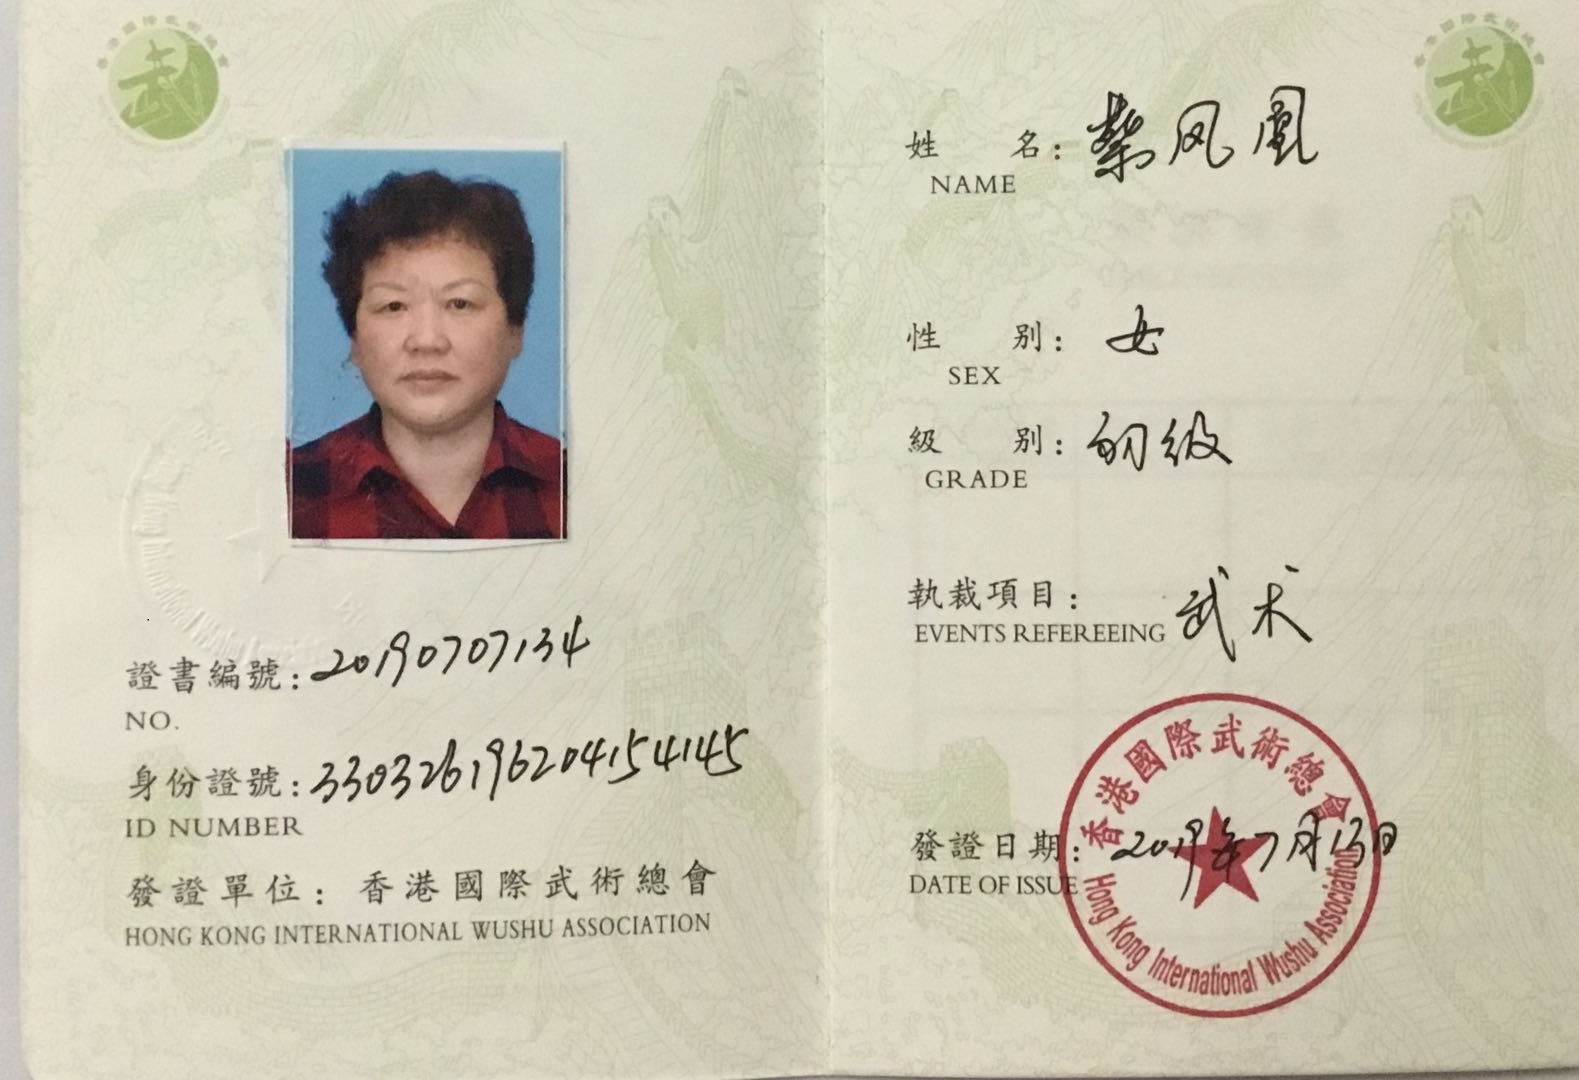 證書編號：20190707134
NO.
身份證號：330326196204154145
ID NUMBER
發證單位：香港國際武術總會
HONG KONG INTERNATIONAL WUSHU ASSOCIATION
香港國際武術總會
武
香港國際武術總會
武
姓 名：蔡凤凰
NAME
性 别：女
SEX
級 别：初级
GRADE
執裁項目：武术
EVENTS REFEREEING
發證日期：2019年7月13日
DATE OF ISSUE
香港國際武術總會
Hong Kong International Wushu Association